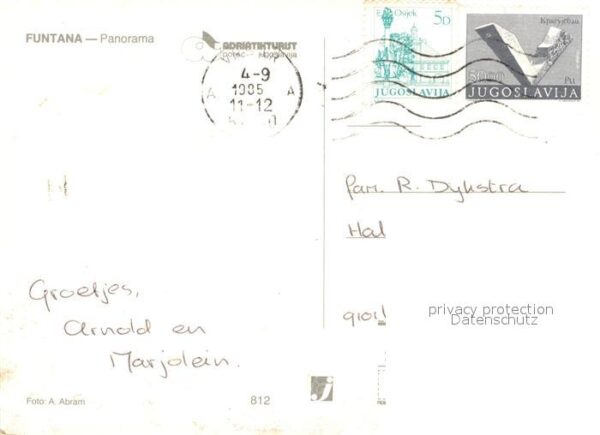 FUNTANA — Panorama
ADRIATIKTURIST
poreč — jugoslavija
4-9
1985
11-12
A A
Osijek 5D
JUGOSLAVIJA
JUGOSLAVIJA
Fam. R. Dykstra
Hal
Groetjes,
Arnold en
Marjolein.
9101
privacy protection
Datenschutz
Foto: A. Abram
812